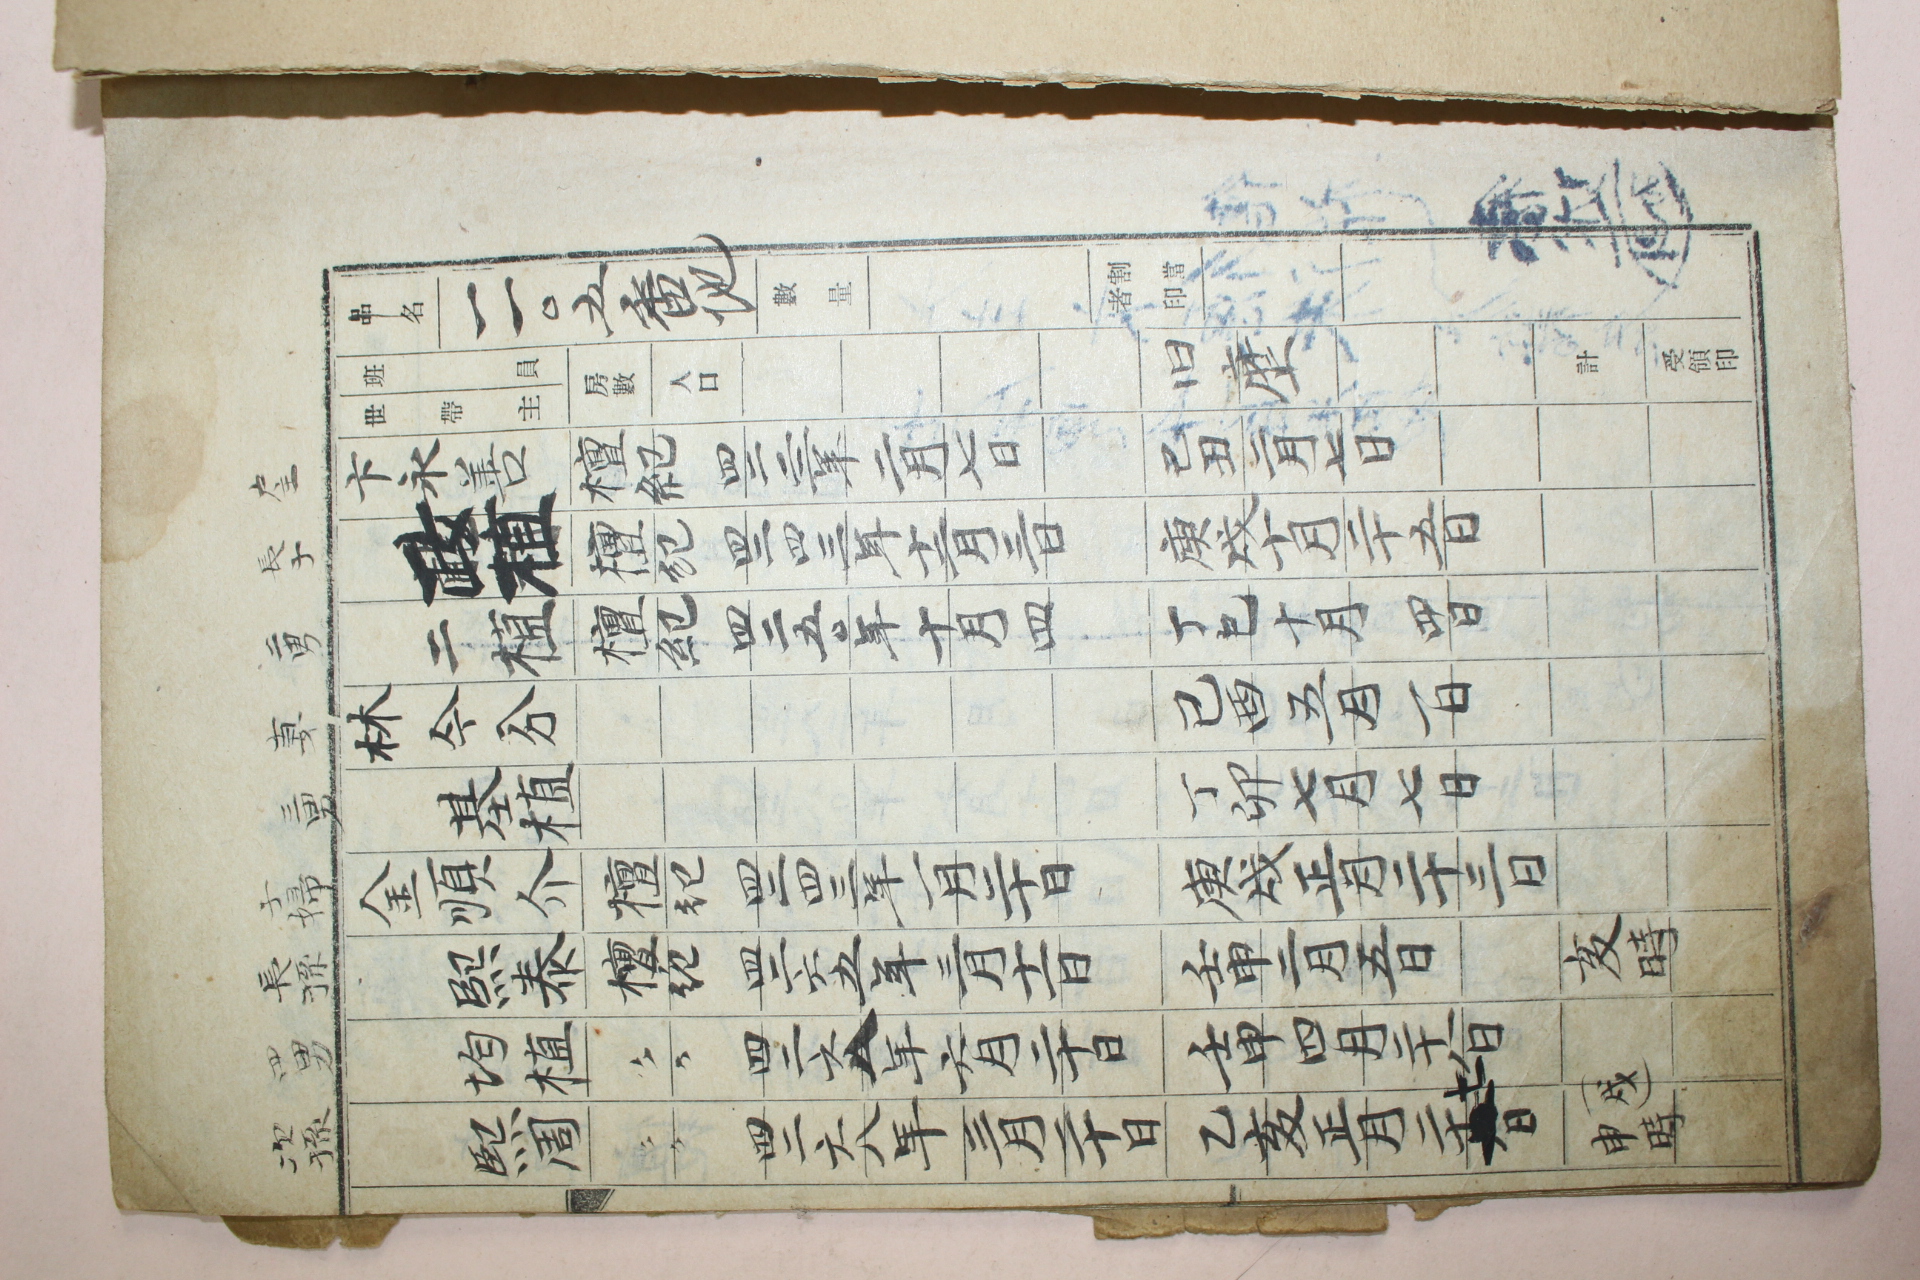 品名
一一〇五番地
數量
割當者印
班員
世帶主
房數
人口
旧曆
計
受領印
卞永善
檀紀
四二二二年二月七日
己丑二月七日
長子
植
檀紀
四二四三年十一月三日
庚戌十月二十五日
二男
二植
檀紀
四二五〇年十月四
丁巳十月四日
妻
林今分
己酉五月一日
三男
基植
丁卯七月七日
子婦
金順介
檀紀
四二四三年一月二十日
庚戌正月二十三日
長孫
熙泰
檀紀
四二六五年三月十一日
壬申二月五日
亥時
四男
均植
〃〃
四二六五年六月二十日
壬申四月二十六日
次孫
熙周
〃〃
四二六八年三月二十日
乙亥正月二十七日
申(戌)時